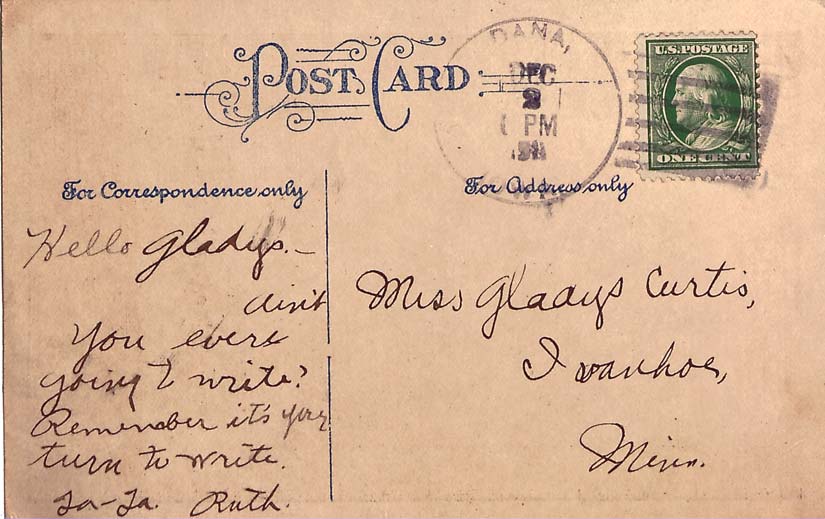 POST CARD
DANA,
DEC
2
PM
U.S. POSTAGE
ONE CENT
For Correspondence only
For Address only
Hello Gladys.—
ain't
you ever
going to write?
Remember it's your
turn to write.
Ta-Ta. Ruth.
Miss Gladys Curtis,
Ivanhoe,
Minn.